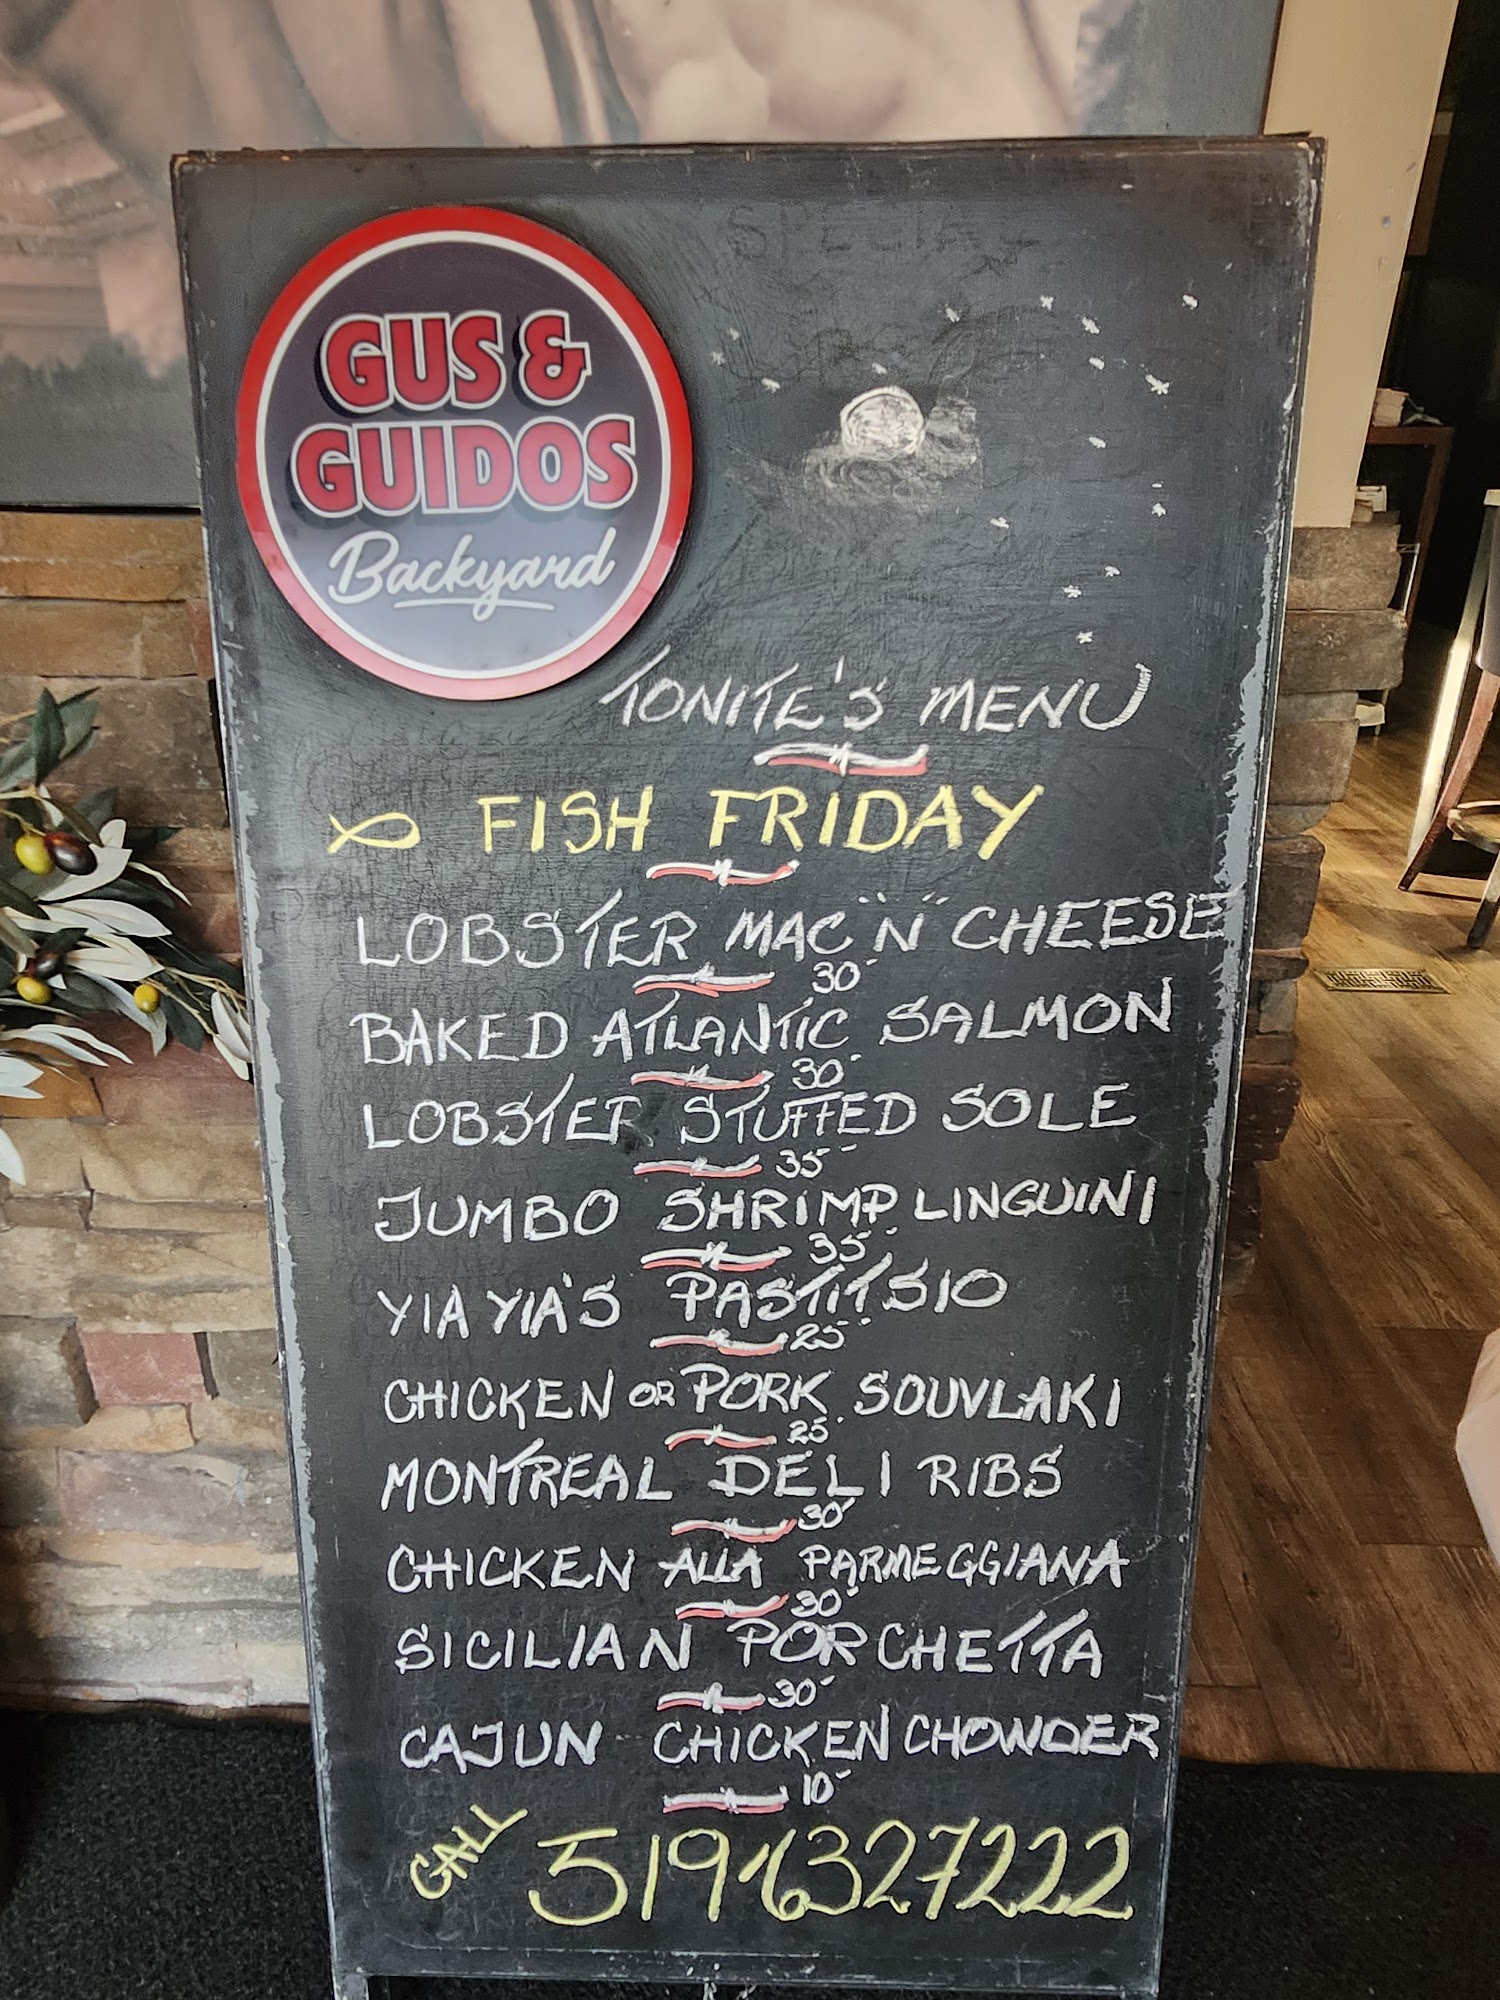 SPECIAL
GUS &
GUIDOS
Backyard
TONITE'S MENU
FISH FRIDAY
LOBSTER MAC "N" CHEESE
30
BAKED ATLANTIC SALMON
30
LOBSTER STUFFED SOLE
35
JUMBO SHRIMP LINGUINI
35
YIA YIA'S PASTITSIO
25
CHICKEN OR PORK SOUVLAKI
25
MONTREAL DELI RIBS
30
CHICKEN ALLA PARMEGGIANA
30
SICILIAN PORCHETTA
30
CAJUN CHICKEN CHOWDER
10
CALL 519 632 7222